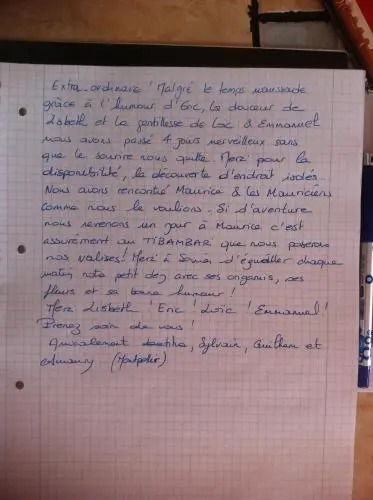 Extra-ordinaire ! Malgré le temps maussade
grâce à l'humour d'Eric, la douceur de
Lisbeth et la gentillesse de Loïc & Emmanuel
nous avons passé 4 jours merveilleux sans
que le sourire nous quitte. Merci pour la
disponibilité, la découverte d'endroit isolés...
Nous avons rencontré Maurice & les Mauriciens
comme nous le voulions. Si d'aventure
nous revenons un jour à Maurice c'est
assurément au TIBAMBAR que nous poserons
nos valises ! Merci à d'égailler chaque
matin notre petit dej avec ses origamis, ses
fleurs et sa bonne humeur !
Merci Lisbeth ! Eric ! Loïc ! Emmanuel !
Prenez soin de vous !
Amicalement Sylvain, Guilhem et
(Montpellier)